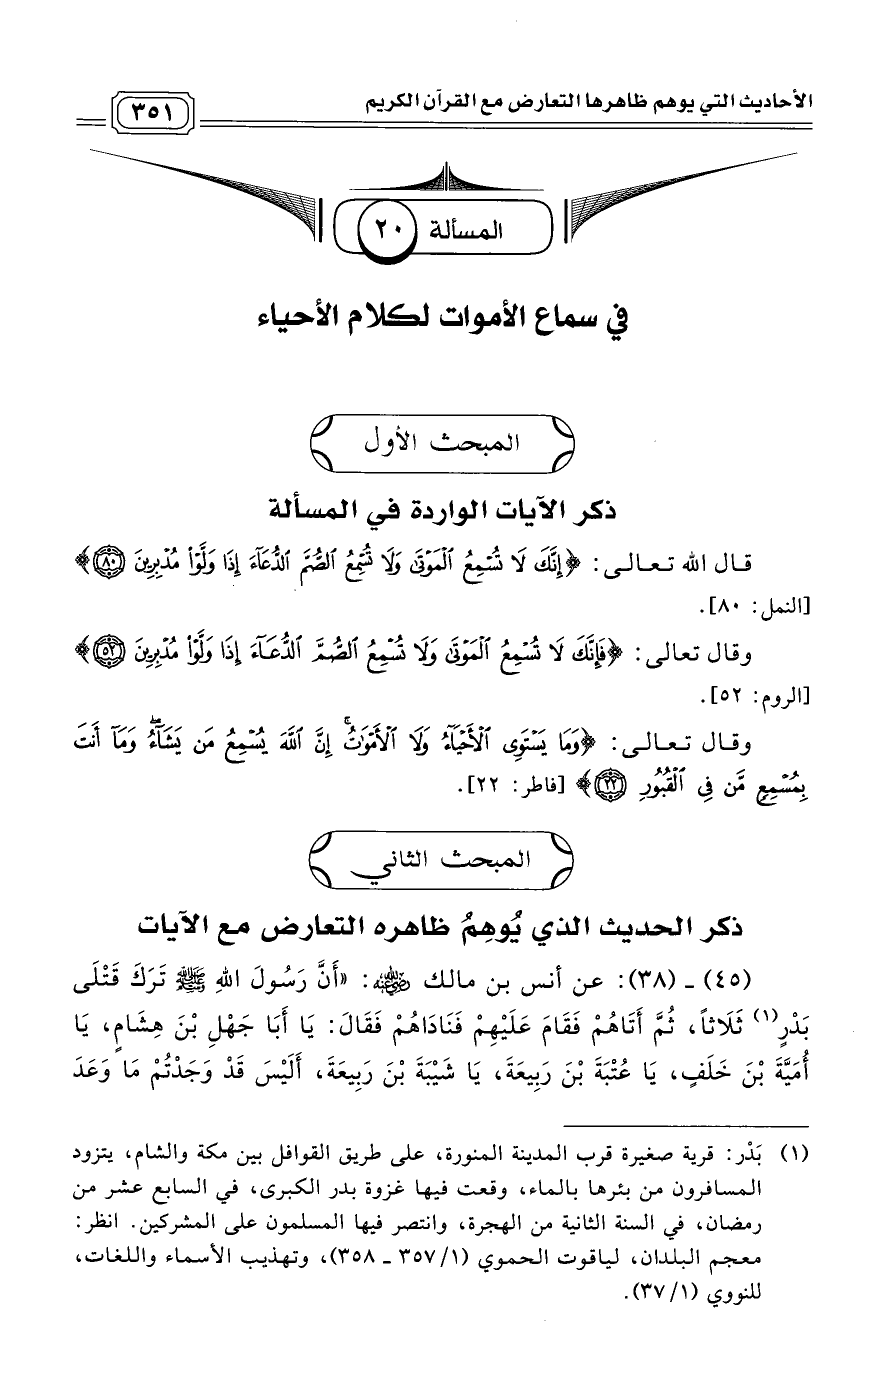 الأحاديث التي يوهم ظاهرها التعارض مع القرآن الكريم
٣٥١
المسألة ٢٠
في سماع الأموات لكلام الأحياء
المبحث الأول
ذكر الآيات الواردة في المسألة
قال الله تعالى: ﴿إِنَّكَ لَا تُسْمِعُ ٱلْمَوْتَىٰ وَلَا تُسْمِعُ ٱلصُّمَّ ٱلدُّعَآءَ إِذَا وَلَّوْا۟ مُدْبِرِينَ ٨٠﴾
[النمل: ٨٠].
وقال تعالى: ﴿فَإِنَّكَ لَا تُسْمِعُ ٱلْمَوْتَىٰ وَلَا تُسْمِعُ ٱلصُّمَّ ٱلدُّعَآءَ إِذَا وَلَّوْا۟ مُدْبِرِينَ ٥٢﴾
[الروم: ٥٢].
وقال تعالى: ﴿وَمَا يَسْتَوِى ٱلْأَحْيَآءُ وَلَا ٱلْأَمْوَٰتُ ۚ إِنَّ ٱللَّهَ يُسْمِعُ مَن يَشَآءُ ۖ وَمَآ أَنتَ
بِمُسْمِعٍ مَّن فِى ٱلْقُبُورِ ٢٢﴾ [فاطر: ٢٢].
المبحث الثاني
ذكر الحديث الذي يُوهِمُ ظاهره التعارض مع الآيات
(٤٥) ـ (٣٨): عن أنس بن مالك رضي الله عنه: «أَنَّ رَسُولَ اللهِ ﷺ تَرَكَ قَتْلَى
بَدْرٍ(١) ثَلَاثاً، ثُمَّ أَتَاهُمْ فَقَامَ عَلَيْهِمْ فَنَادَاهُمْ فَقَالَ: يَا أَبَا جَهْلِ بْنَ هِشَامٍ، يَا
أُمَيَّةَ بْنَ خَلَفٍ، يَا عُتْبَةَ بْنَ رَبِيعَةَ، يَا شَيْبَةَ بْنَ رَبِيعَةَ، أَلَيْسَ قَدْ وَجَدْتُمْ مَا وَعَدَ
(١) بَدْر: قرية صغيرة قرب المدينة المنورة، على طريق القوافل بين مكة والشام، يتزود
المسافرون من بئرها بالماء، وقعت فيها غزوة بدر الكبرى، في السابع عشر من
رمضان، في السنة الثانية من الهجرة، وانتصر فيها المسلمون على المشركين. انظر:
معجم البلدان، لياقوت الحموي (١/ ٣٥٧ ـ ٣٥٨)، وتهذيب الأسماء واللغات،
للنووي (١/ ٣٧).